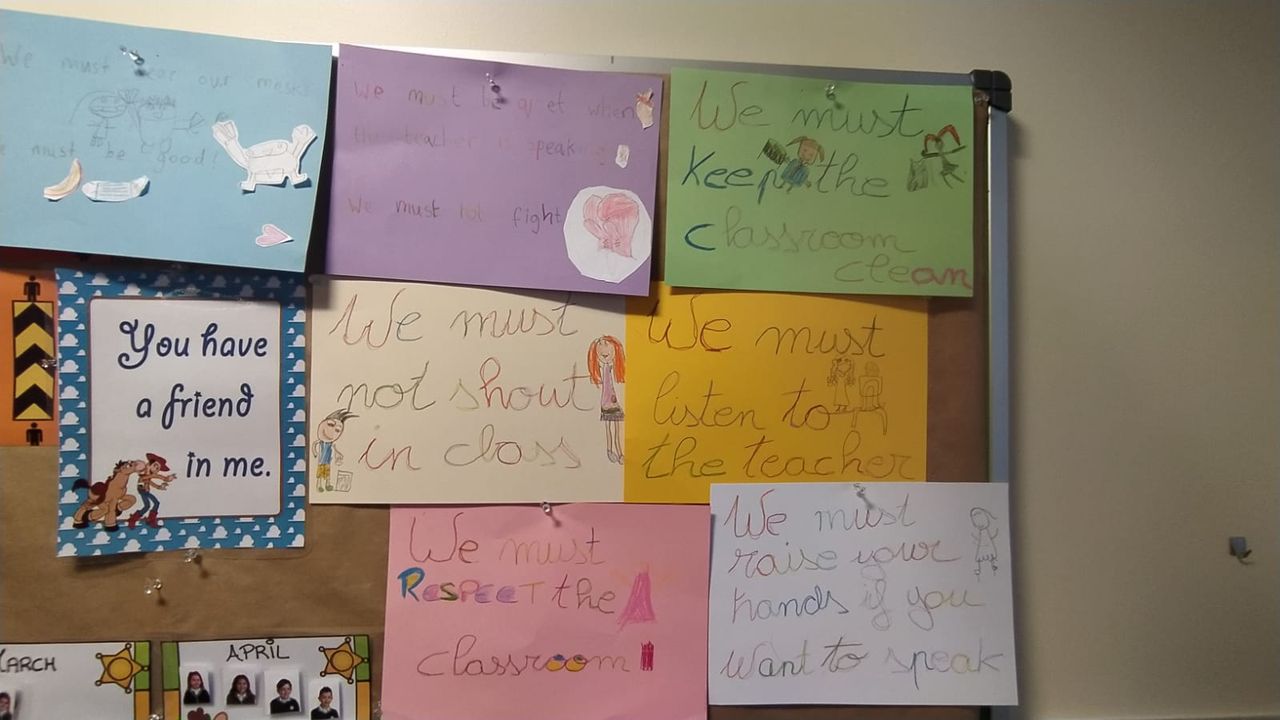 We must wear our masks
we must be good!
We must be quiet when
the teacher is speaking
We must not fight
We must
Keep the
classroom
clean
You have
a friend
in me.
We must
not shout
in class
We must
listen to
the teacher
We must
RESPECT the
classroom
We must
raise your
hands if you
want to speak
MARCH
APRIL